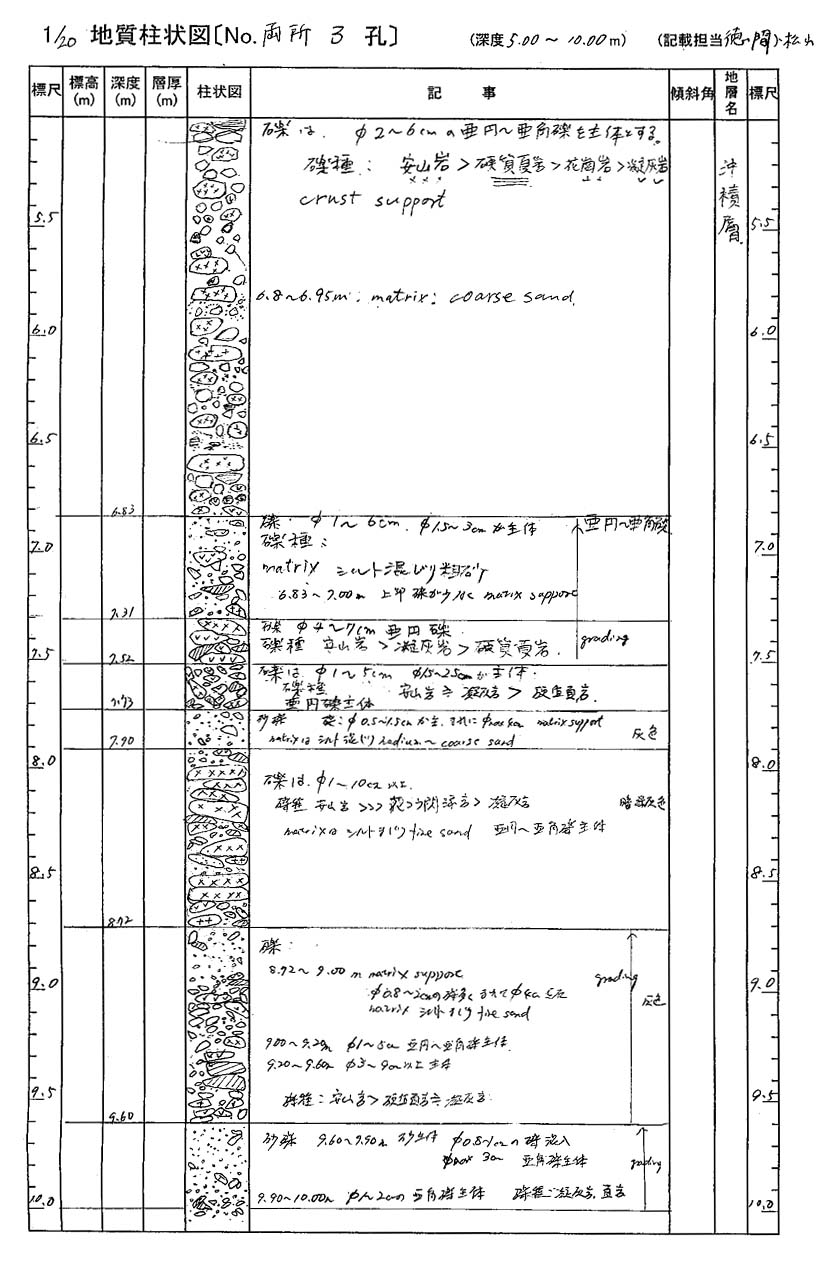 1/20 地質柱状図〔No. 両所 3 孔〕 (深度 5.00 ～ 10.00 m) (記載担当 徳間、松山
標尺 標高(m) 深度(m) 層厚(m) 柱状図 記事 傾斜角 地層名 標尺
礫は、φ2～6cmの亜円～亜角礫を主体とする。
礫種: 安山岩>硬質頁岩>花崗岩>凝灰岩
crust support
沖積層
5.5 5.5
6.8～6.95m: matrix: coarse sand.
6.0 6.0
6.5 6.5
6.83
礫: φ1～6cm. φ1.5～3cmが主体 亜円～亜角礫
礫種:
7.0 7.0
matrix シルト混じり粗砂
6.83～7.00m 上部 礫が少なく matrix support
7.31
礫 φ4～7cm 亜円礫.
礫種 安山岩>凝灰岩>硬質頁岩. grading
7.5 7.5
7.52
礫は φ1～5cm φ1.5～2.5cmが主体.
礫種 安山岩≒凝灰岩>硬質頁岩.
亜円礫主体
7.73
砂礫 礫: φ0.5～1.5cmが主. matrix support
matrixはシルト混じり medium～coarse sand 灰色
7.90
8.0 8.0
礫は、φ1～10cm以上.
礫種 安山岩>>> 凝灰岩
matrixはシルトまじり fine sand 亜円～亜角礫主体
8.5 8.5
8.72
礫:
8.72～9.00m matrix support grading
9.0 9.0
φ0.8～2cmの礫多く まれにφ4cm 灰色
matrix シルトまじり fine sand
9.00～9.20m φ1～5cm 亜円～亜角礫主体.
9.20～9.60m φ3～9cm以上主体
9.5 9.5
礫種: 安山岩>硬質頁岩≒凝灰岩.
9.60
砂礫 9.60～9.90m 砂主体 φ0.8～1cmの礫混入
φmax 3cm 亜角礫主体 grading
9.90～10.00m φ1～2cmの亜角礫主体 礫種: 凝灰岩. 頁岩
10.0 10.0